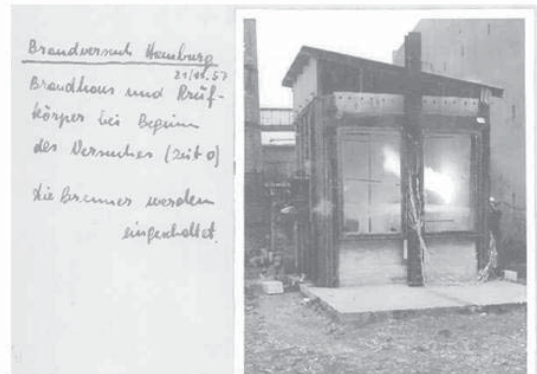 Brandversuch Hamburg
Brandhaus und Prüf-
körper bei Beginn
des Versuches (Zeit 0)
Die Brenner werden
eingeschaltet.